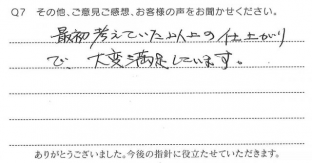 Q7 その他、ご意見ご感想、お客様の声をお聞かせください。
最初考えていた以上の仕上がり
で、大変満足しています。
ありがとうございました。今後の指針に役立たせていただきます。